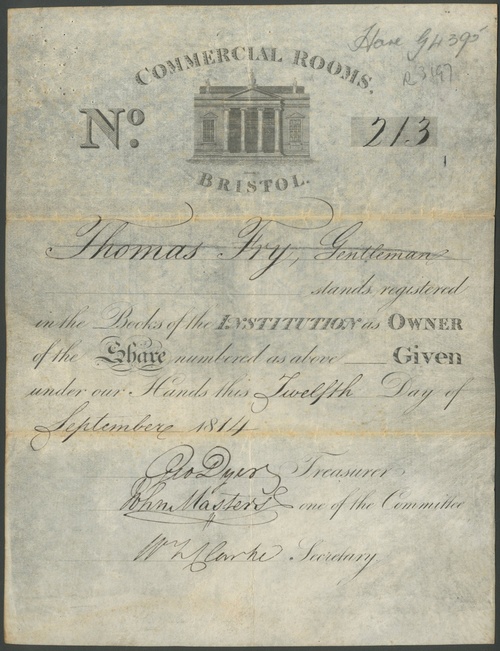 Hase G4395
R3197
COMMERCIAL ROOMS.
No. 213
BRISTOL.
Thomas Fry, Gentleman
stands registered
in the Books of the INSTITUTION as OWNER
of the Share numbered as above Given
under our Hands this Twelfth Day of
September 1814
Geo Dyer Treasurer
John Masters one of the Committee
Wm L Clarke Secretary